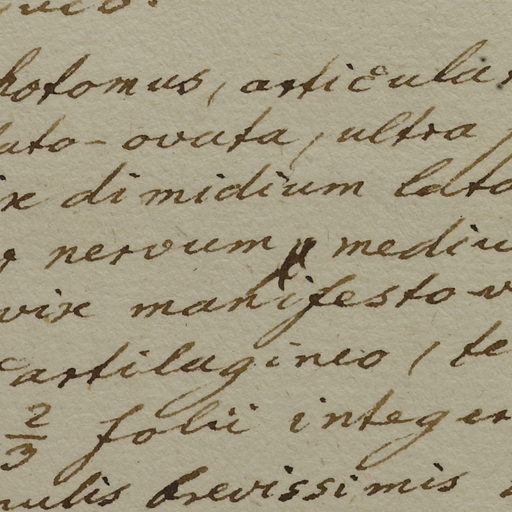 hotomus, articular
lato-ovata, ultra
ix dimidium lato
nervum mediu
vix manifesto v
Cartilagineo, te
2/3 folii integer
nulis brevissimis